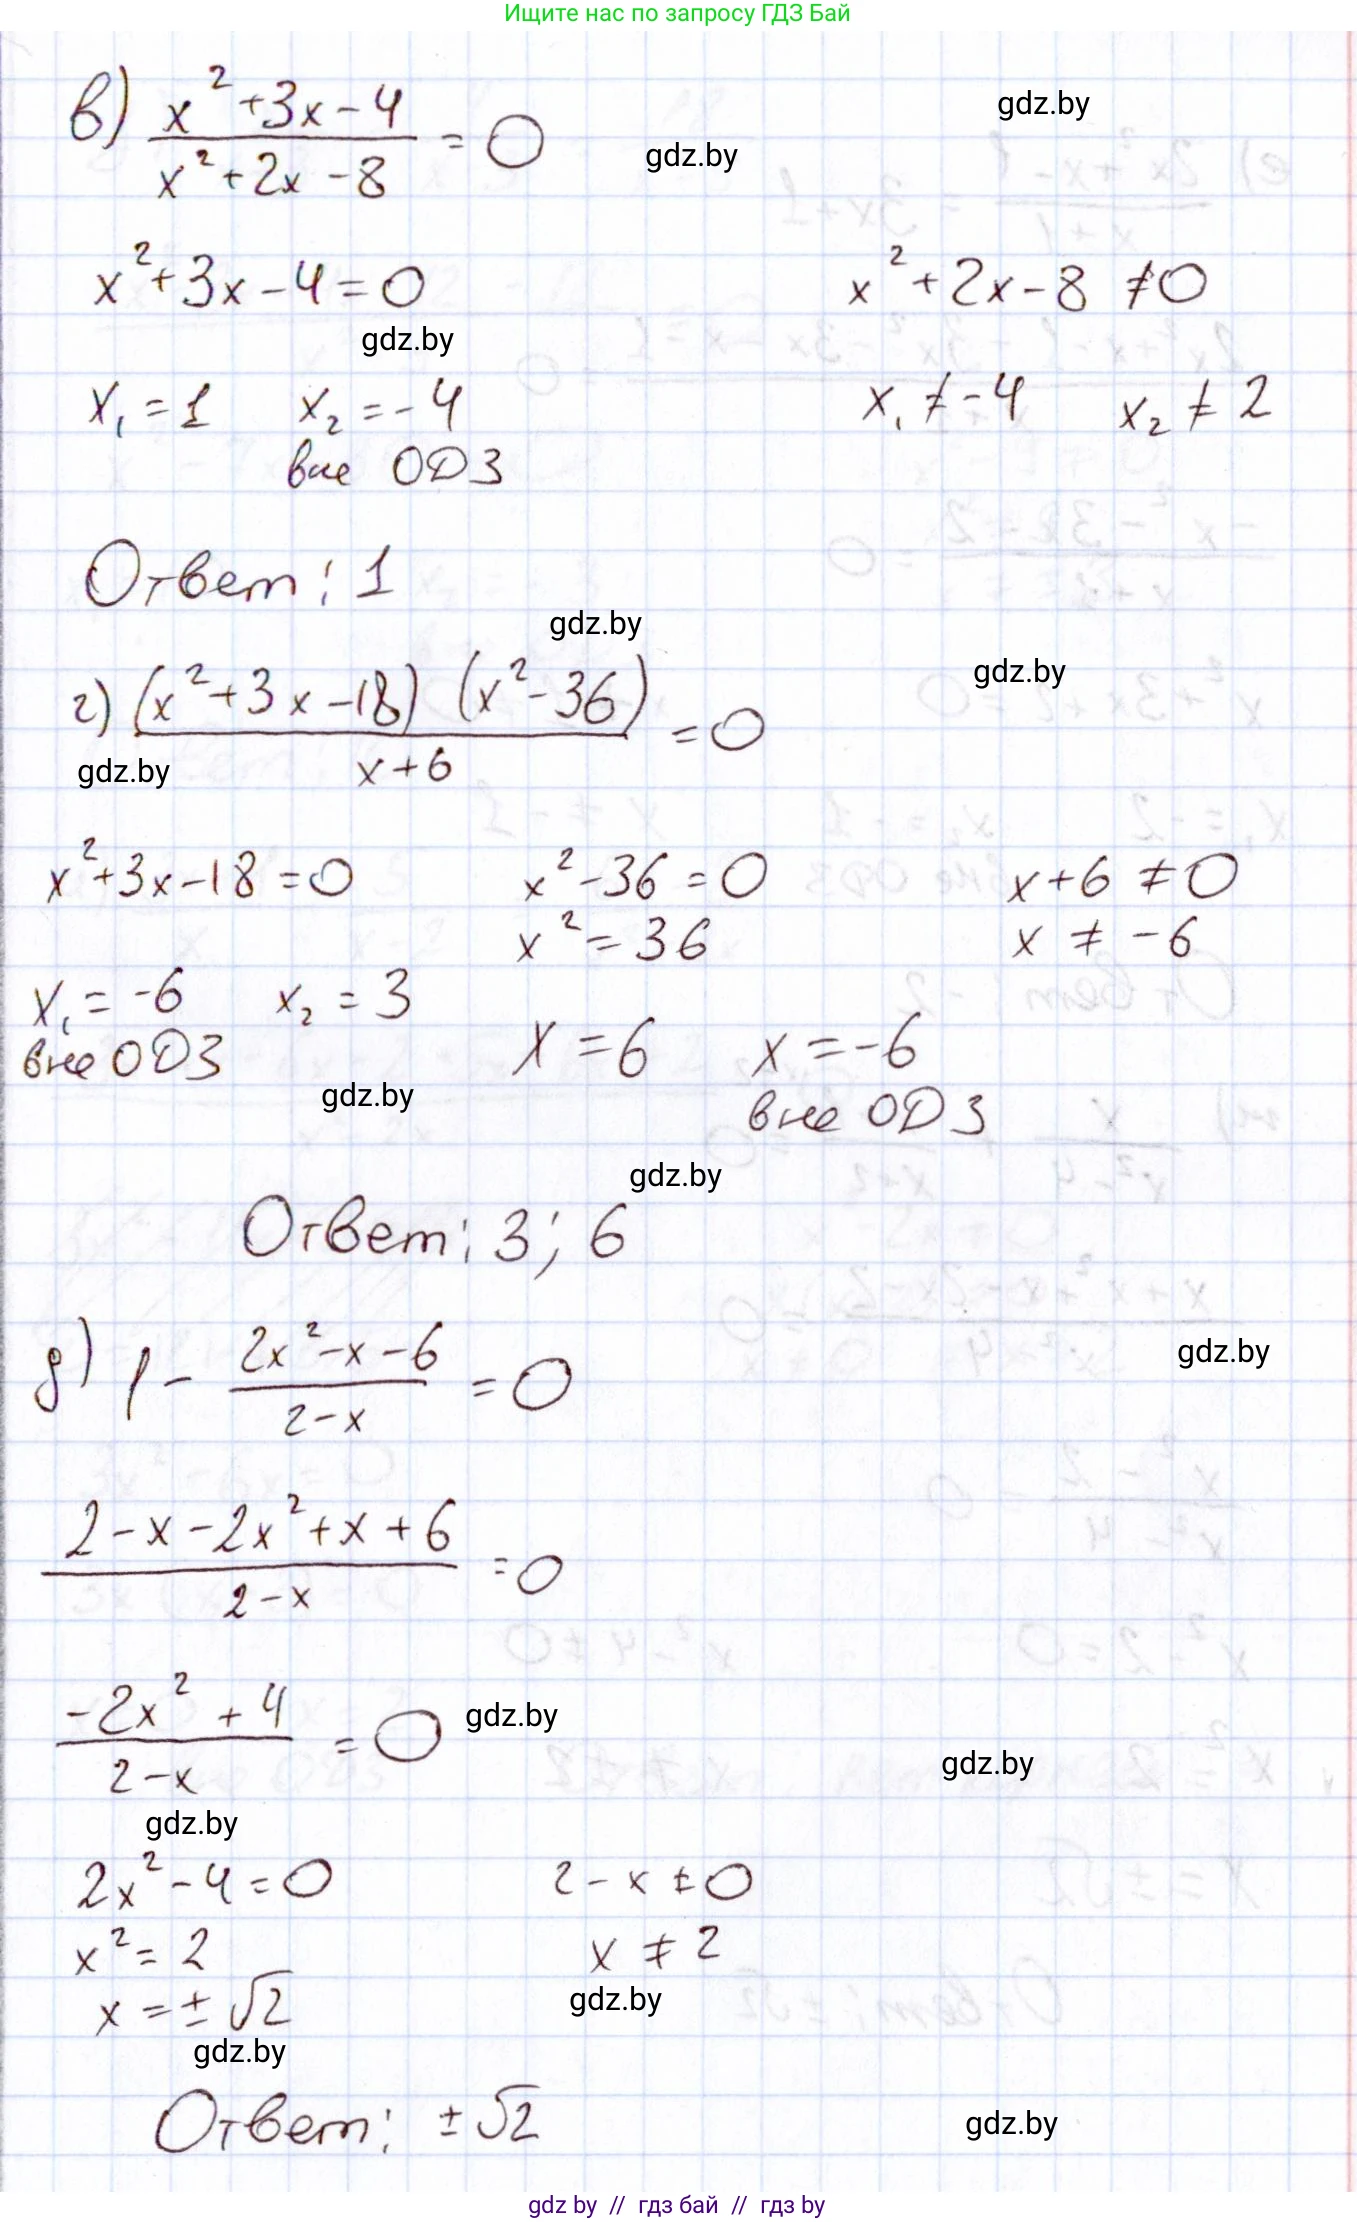 Ищите нас по запросу ГДЗ Бай
в) (x² + 3x - 4)/(x² + 2x - 8) = 0
gdz.by
gdz.by
x² + 3x - 4 = 0    x² + 2x - 8 ≠ 0
gdz.by
x₁ = 1    x₂ = -4    x₁ ≠ -4    x₂ ≠ 2
вне ОДЗ
Ответ: 1
gdz.by
г) (x² + 3x - 18) (x² - 36)/(x + 6) = 0
gdz.by
gdz.by
x² + 3x - 18 = 0    x² - 36 = 0    x + 6 ≠ 0
x² = 36    x ≠ -6
x₁ = -6    x₂ = 3
x = 6    x = -6
вне ОДЗ
gdz.by
вне ОДЗ
gdz.by
Ответ: 3; 6
д) 1 - (2x² - x - 6)/(2 - x) = 0
gdz.by
(2 - x - 2x² + x + 6)/(2 - x) = 0
(-2x² + 4)/(2 - x) = 0
gdz.by
gdz.by
gdz.by
2x² - 4 = 0    2 - x ≠ 0
x² = 2    x ≠ 2
x = ±√2
gdz.by
gdz.by
Ответ: ±√2
gdz.by
gdz by // гдз бай // гдз by